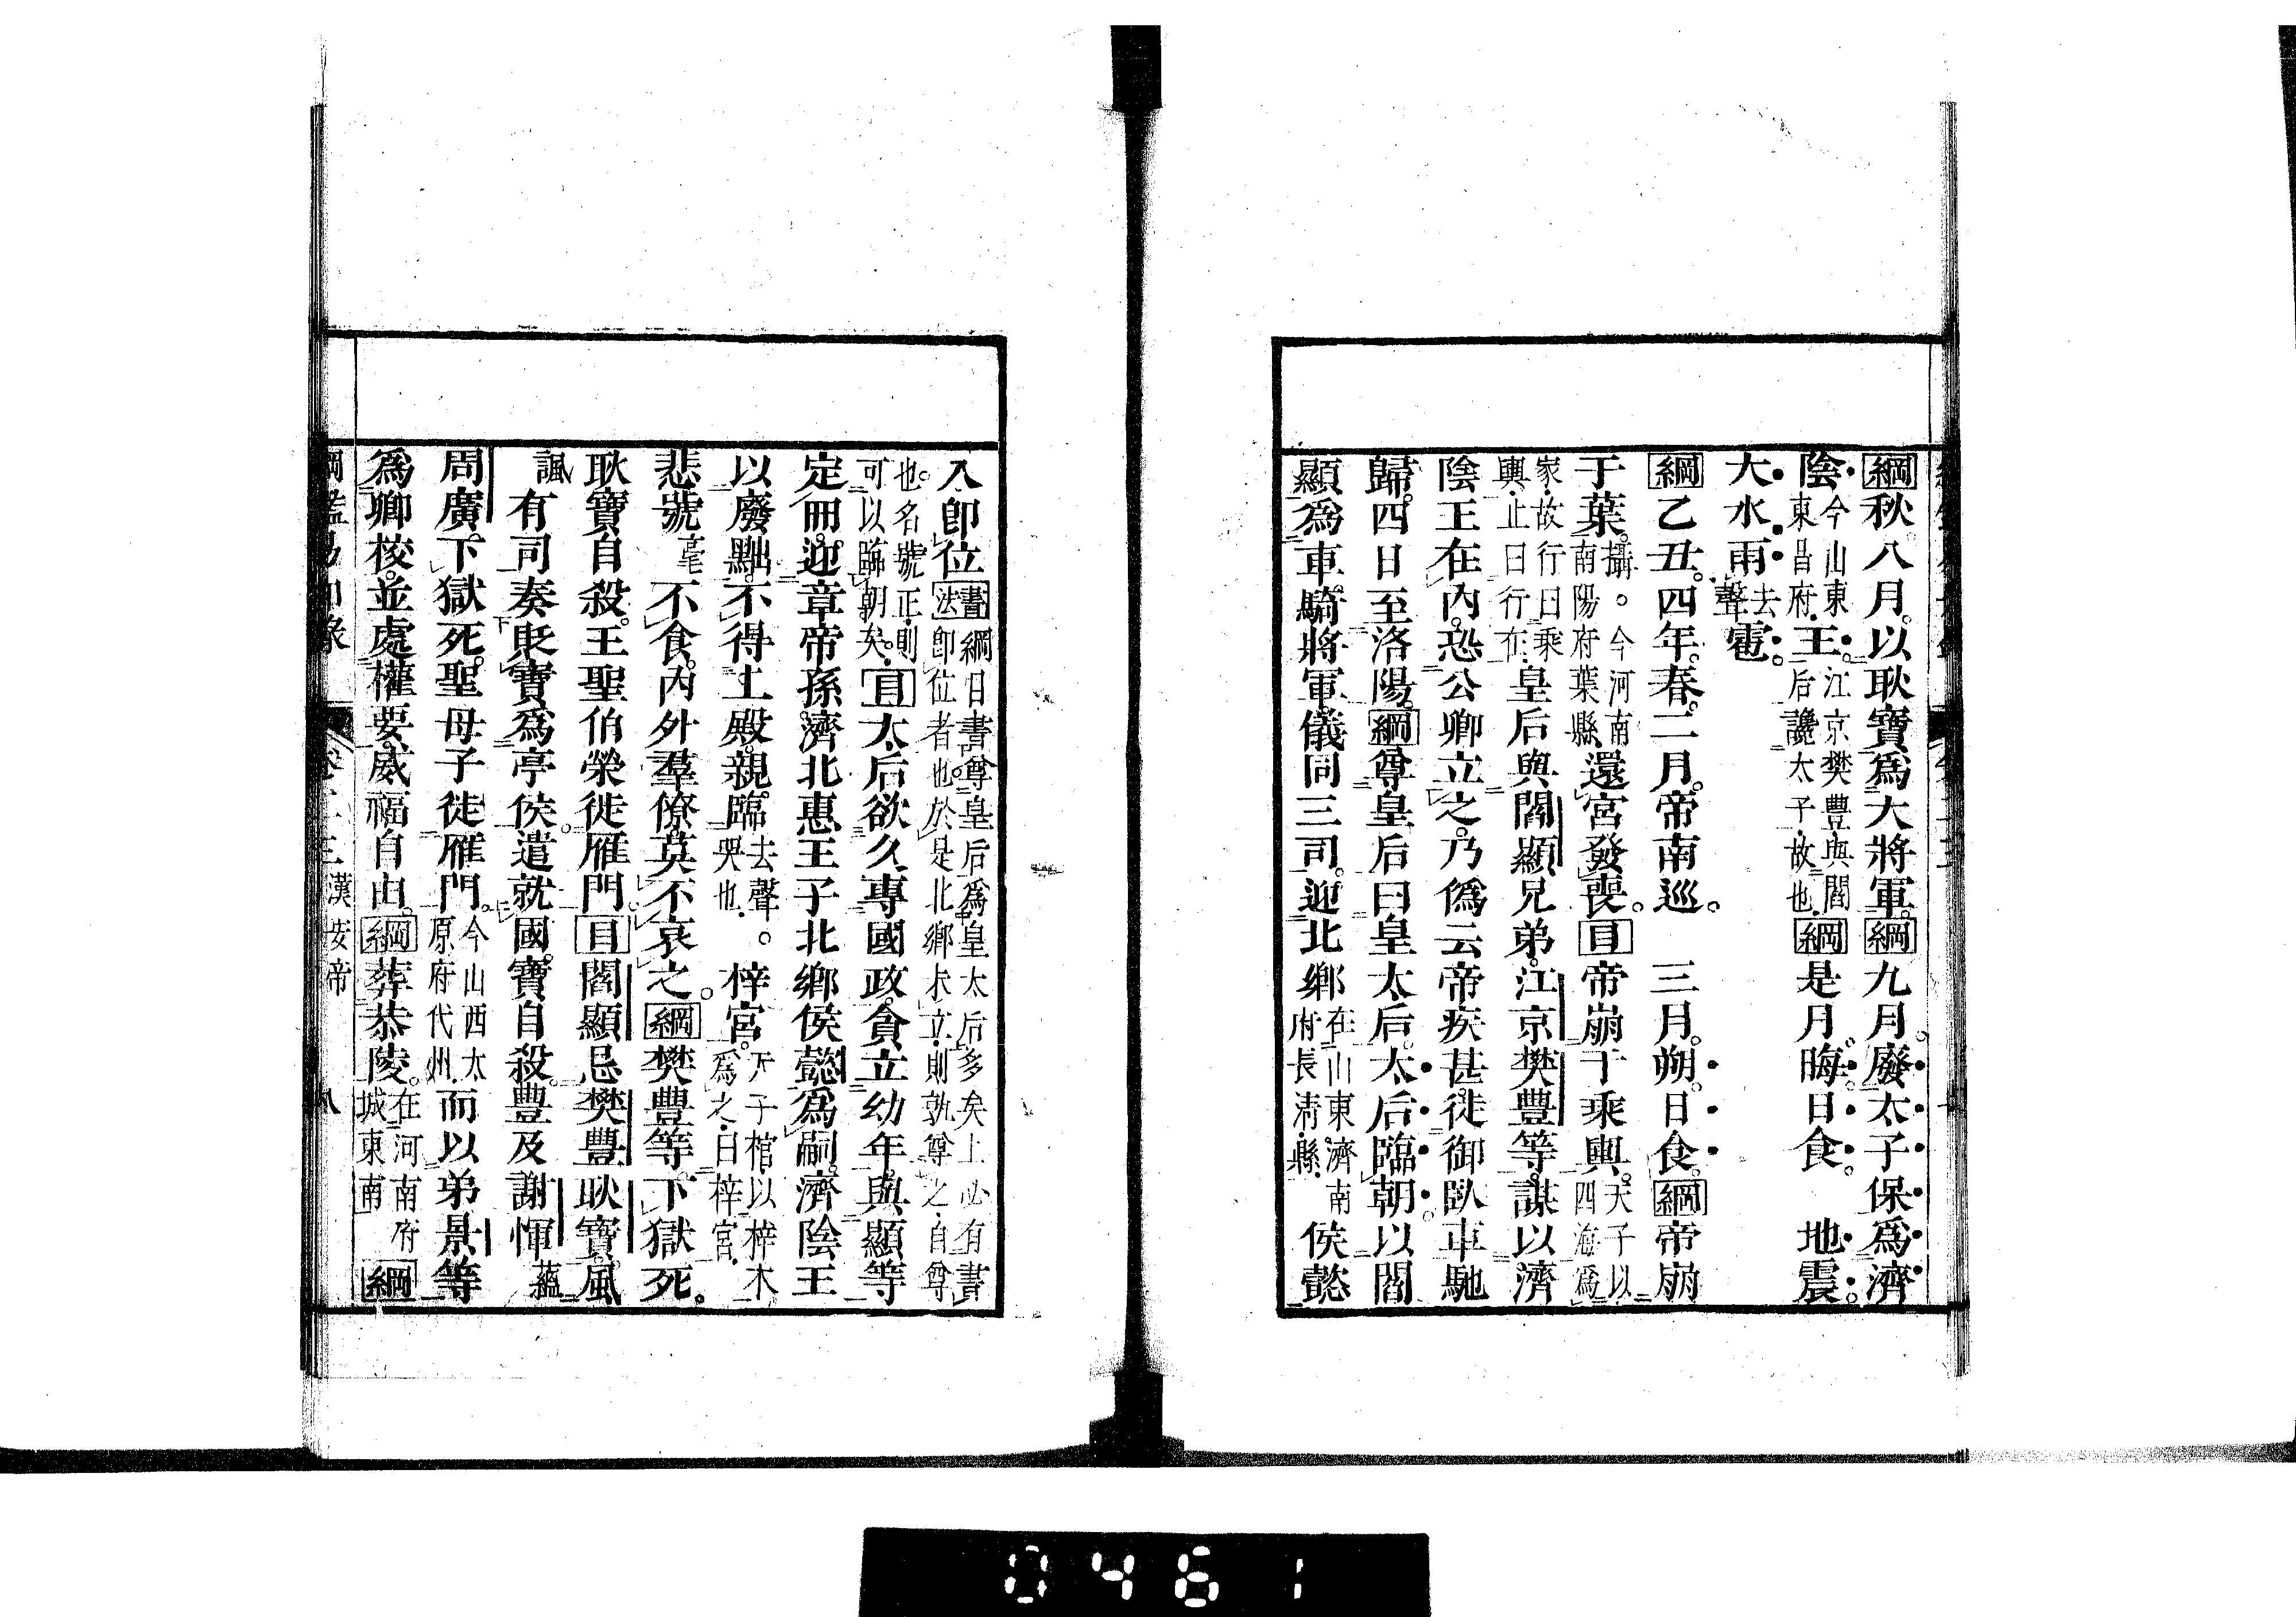 綱秋八月。以耿寶爲大將軍。綱九月。廢太子保爲濟
陰今山東東昌府王。江京樊豐與閻后讒太子故也綱是月晦。日食。 地震。
大水雨去聲雹。
綱乙丑。四年。春。二月。帝南巡。 三月。朔。日食。綱帝崩
于葉。攝。今河南南陽府葉縣還宮發喪。目帝崩于乘輿。天子以四海爲
家故行曰乘輿止曰行在皇后與閻顯兄弟。江京樊豐等。謀以濟
陰王在內。恐公卿立之。乃僞云帝疾甚。徙御臥車馳
歸。四日至洛陽。綱尊皇后曰皇太后。太后臨朝。以閻
顯爲車騎將軍。儀同三司。迎北鄉在山東濟南府長淸縣侯懿
入卽位書法綱目書尊皇后爲皇太后多矣上必有書卽位者也於是北鄉未立則孰尊之自尊
也。名號正則可以臨朝矣。目太后欲久專國政。貪立幼年。與顯等
定冊。迎章帝孫濟北惠王子北鄉侯懿爲嗣。濟陰王
以廢黜。不得上殿。親臨去聲。哭也梓宮。天子棺以梓木爲之曰梓宮
悲號毫不食。內外羣僚莫不哀之。綱樊豐等。下獄死。
耿寶自殺。王聖伯榮徙雁門。目閻顯忌樊豐耿寶。風
諷有司奏貶寶爲亭侯。遣就國。寶自殺。豐及謝惲蘊
周廣。下獄死。聖母子徙雁門。今山西太原府代州而以弟景等
爲卿校。並處權要。威福自由。綱葬恭陵。在河南府城東南綱
漢安帝 八
0461